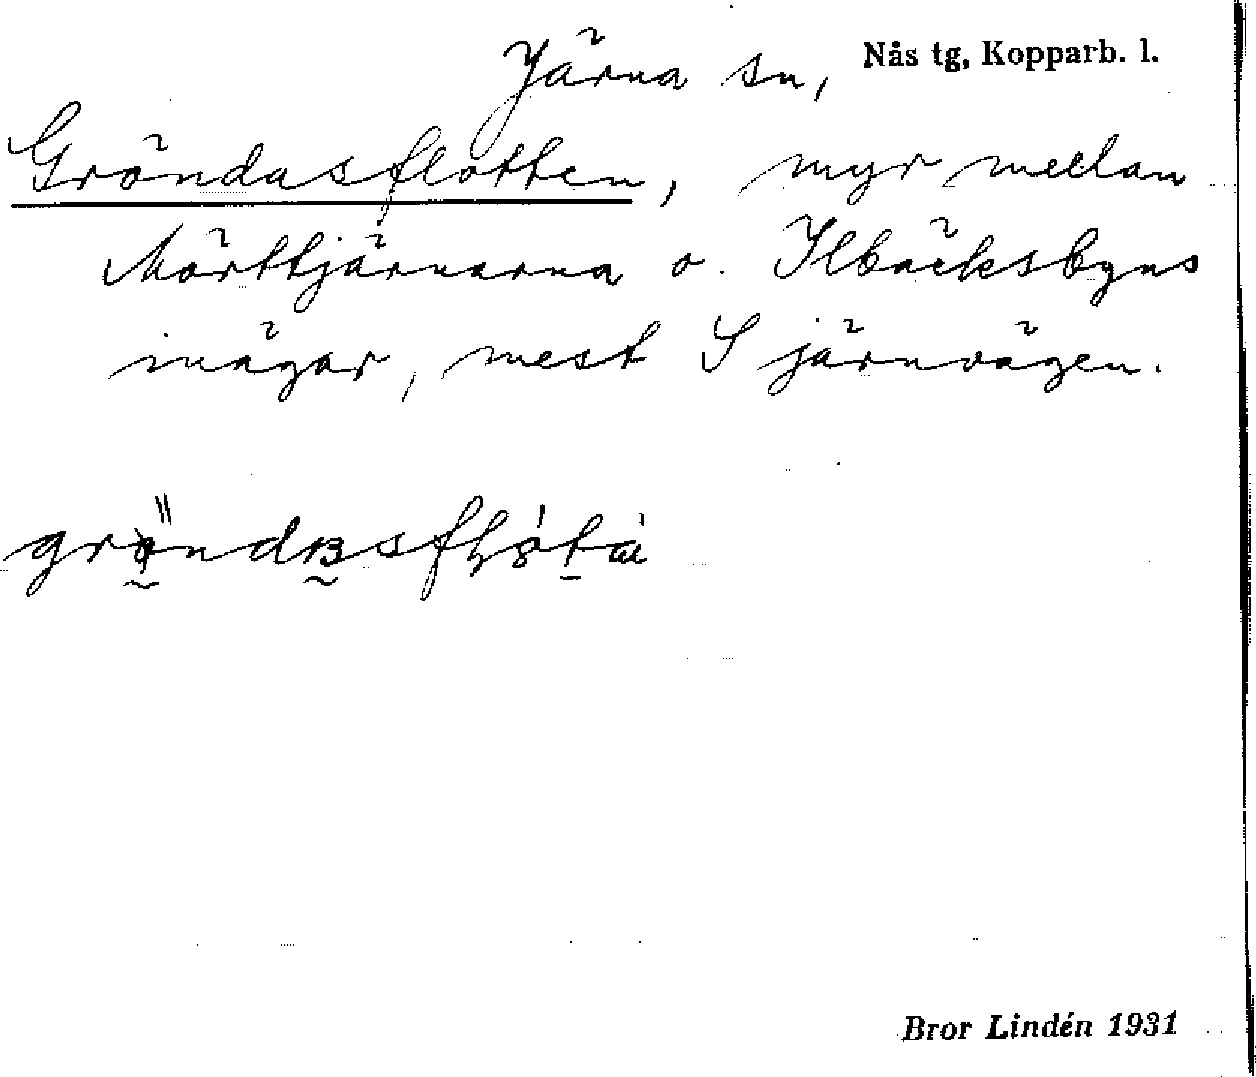 Järna sn, Nås tg, Kopparb. l.
Gröndasflotten, myr mellan
Mörttjärnarna o. Ilbäcksbyns
inägor, mest S järnvägen.
Bror Lindén 1931